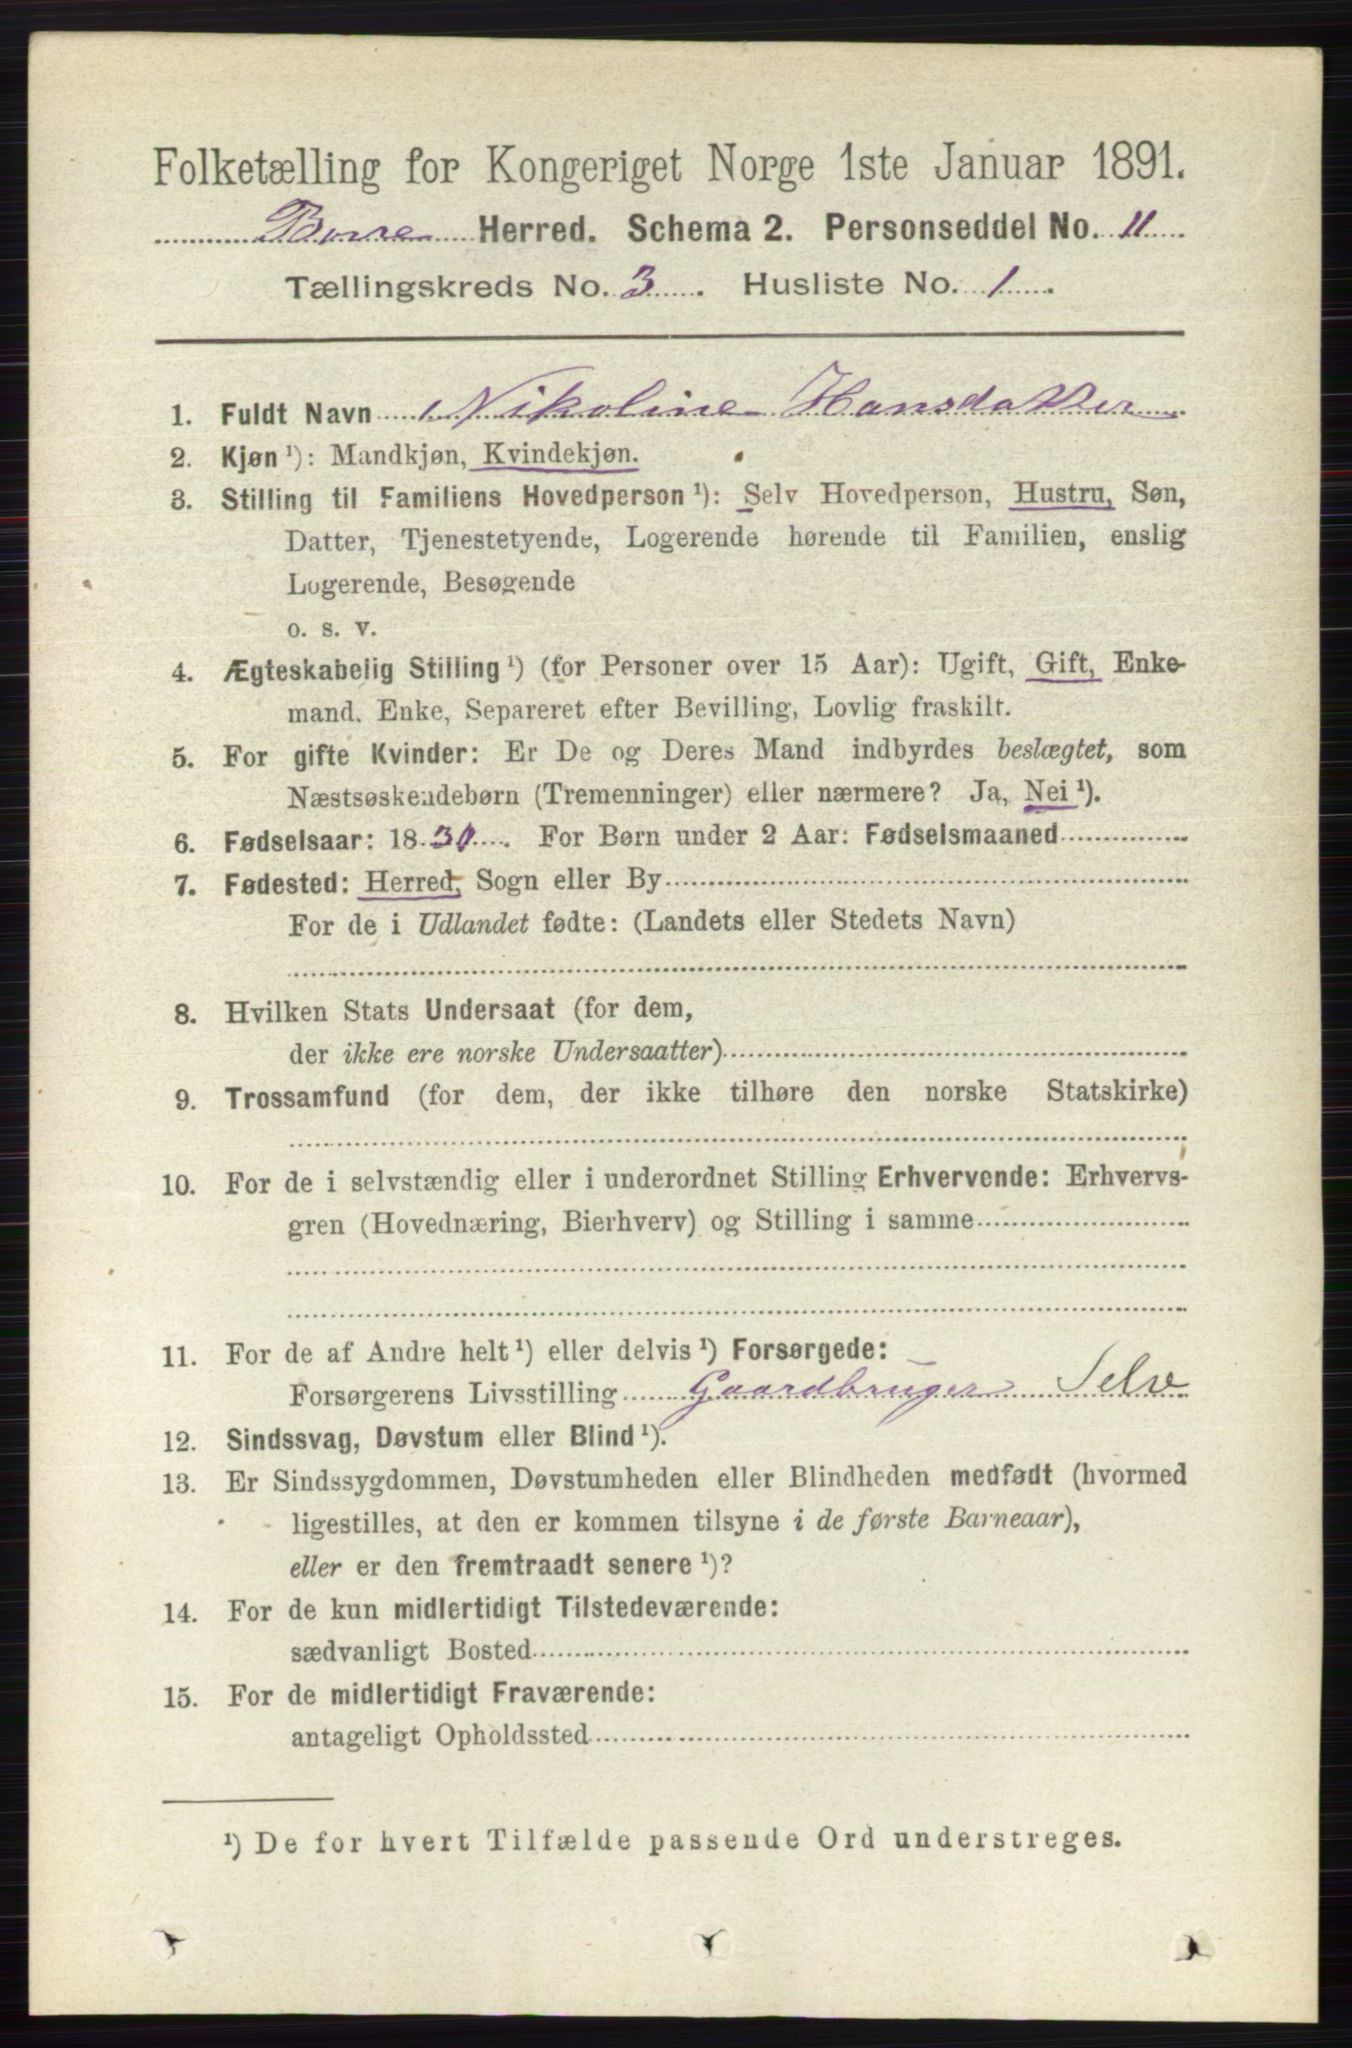 Folketælling for Kongeriget Norge 1ste Januar 1891.
Borre Herred. Schema 2. Personseddel No. 11
Tællingskreds No. 3. Husliste No. 1.
1. Fuldt Navn Nikoline Hansdatter
2. Kjøn ¹): Mandkjøn, Kvindekjøn.
3. Stilling til Familiens Hovedperson ¹): Selv Hovedperson, Hustru, Søn,
Datter, Tjenestetyende, Logerende hørende til Familien, enslig
Logerende, Besøgende
o. s. v.
4. Ægteskabelig Stilling ¹) (for Personer over 15 Aar): Ugift, Gift, Enke-
mand, Enke, Separeret efter Bevilling, Lovlig fraskilt.
5. For gifte Kvinder: Er De og Deres Mand indbyrdes beslægtet, som
Næstsøskendebørn (Tremenninger) eller nærmere? Ja, Nei ¹).
6. Fødselsaar: 1830. For Børn under 2 Aar: Fødselsmaaned
7. Fødested: Herred, Sogn eller By
For de i Udlandet fødte: (Landets eller Stedets Navn)
8. Hvilken Stats Undersaat (for dem,
der ikke ere norske Undersaatter)
9. Trossamfund (for dem, der ikke tilhøre den norske Statskirke)
10. For de i selvstændig eller i underordnet Stilling Erhvervende: Erhvervs-
gren (Hovednæring, Bierhverv) og Stilling i samme
11. For de af Andre helt ¹) eller delvis ¹) Forsørgede:
Forsørgerens Livsstilling Gaardbruger Selv
12. Sindssvag, Døvstum eller Blind ¹).
13. Er Sindssygdommen, Døvstumheden eller Blindheden medfødt (hvormed
ligestilles, at den er kommen tilsyne i de første Barneaar),
eller er den fremtraadt senere ¹)?
14. For de kun midlertidigt Tilstedeværende:
sædvanligt Bosted
15. For de midlertidigt Fraværende:
antageligt Opholdssted
¹) De for hvert Tilfælde passende Ord understreges.